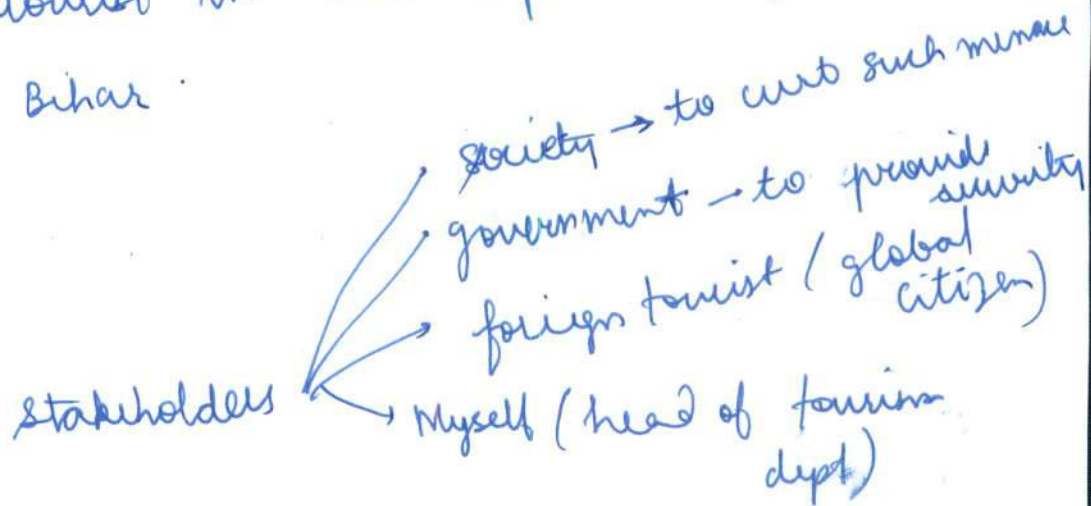 Bihar
society → to curb such menace
government → to provide
security
foriegn tourist (global
citizen)
Stakeholders
Myself (head of tourism
dept)